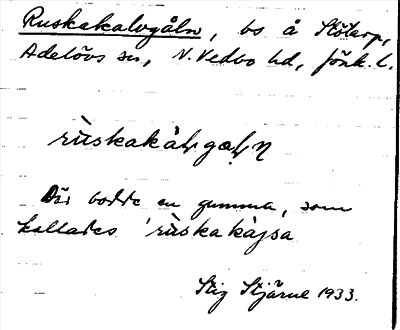 Ruskakalvgåln, bs å Stötarp,
Adelövs sn, N. Vedbo hd, Jönk. l.
rùskakàlvgaln
Där bodde en gumma, som
kallades rùskakàjsa
Stig Stjärne 1933.